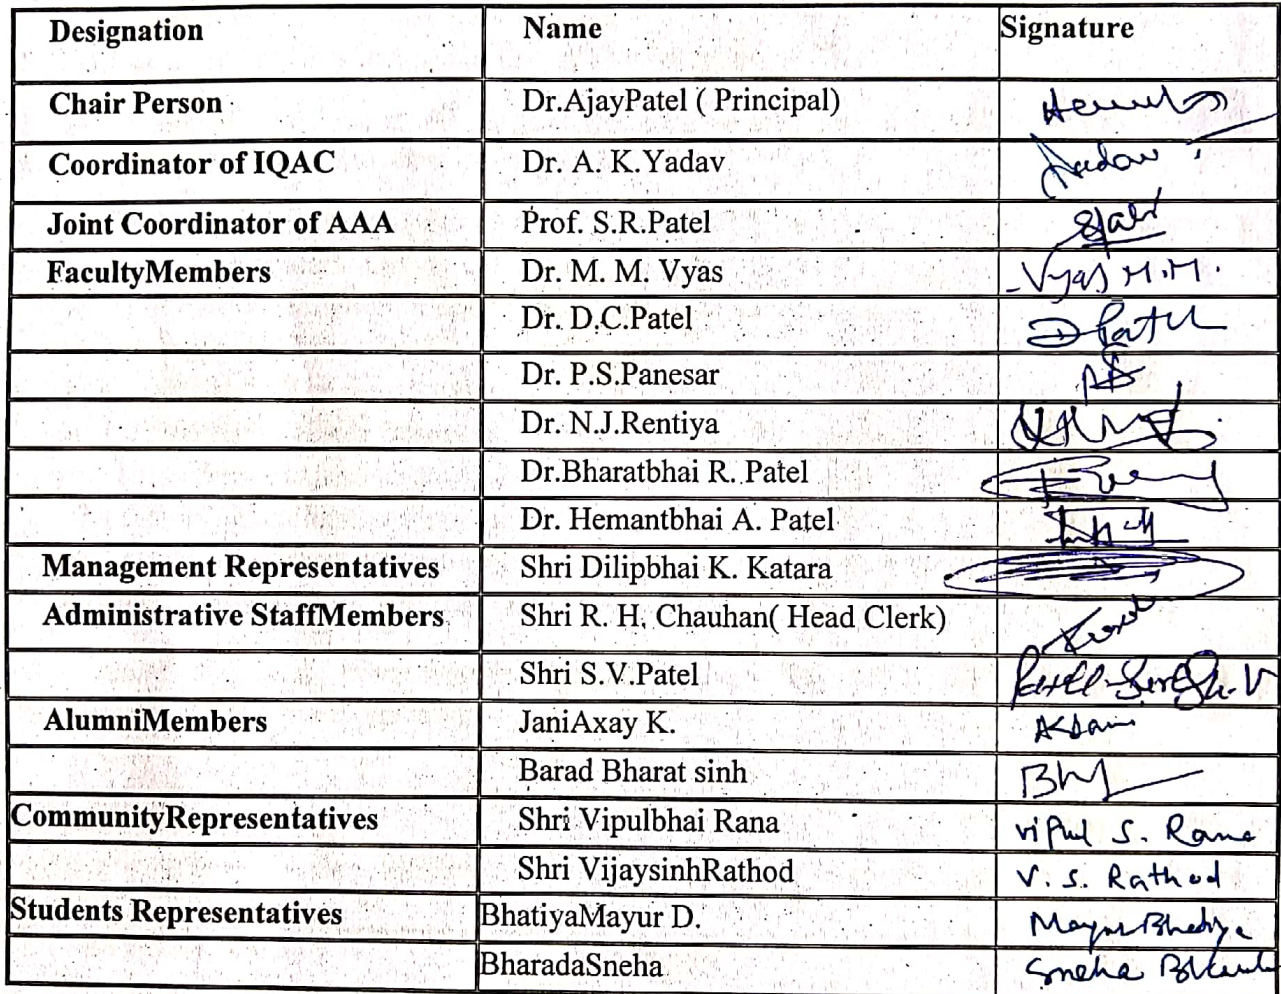 Designation Name Signature
Chair Person Dr.AjayPatel ( Principal)
Coordinator of IQAC Dr. A. K.Yadav
Joint Coordinator of AAA Prof. S.R.Patel
FacultyMembers Dr. M. M. Vyas Vyas M.M.
Dr. D.C.Patel D Patel
Dr. P.S.Panesar
Dr. N.J.Rentiya
Dr.Bharatbhai R. Patel
Dr. Hemantbhai A. Patel
Management Representatives Shri Dilipbhai K. Katara
Administrative StaffMembers Shri R. H. Chauhan( Head Clerk)
Shri S.V.Patel
AlumniMembers JaniAxay K.
Barad Bharat sinh
CommunityRepresentatives Shri Vipulbhai Rana Vipul S. Rana
Shri VijaysinhRathod V. S. Rathod
Students Representatives BhatiyaMayur D. Mayur Bhatiya
BharadaSneha Sneha